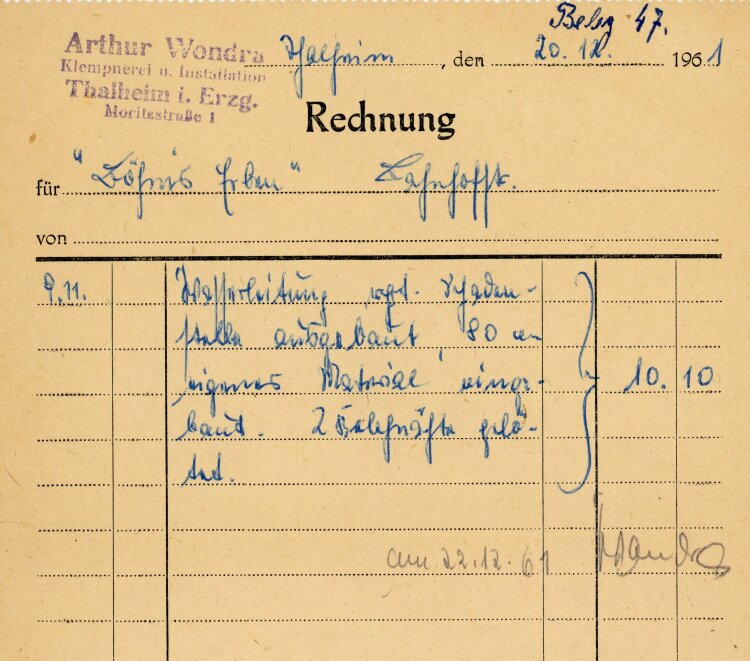 Beleg 47.
Arthur Wondra
Klempnerei u. Installation
Thalheim i. Erzg.
Moritzstraße 1
Thalheim, den 20. 12. 1961
Rechnung
für "Böhm's Erben" Bahnhofst.
von
9.11. Wasserleitung rep. Schaden-
stelle ausgebaut, 80 cm
eigenes Material einge-
baut. 2 gelö-
tet.
10.10
am 22.12.61 Wondra